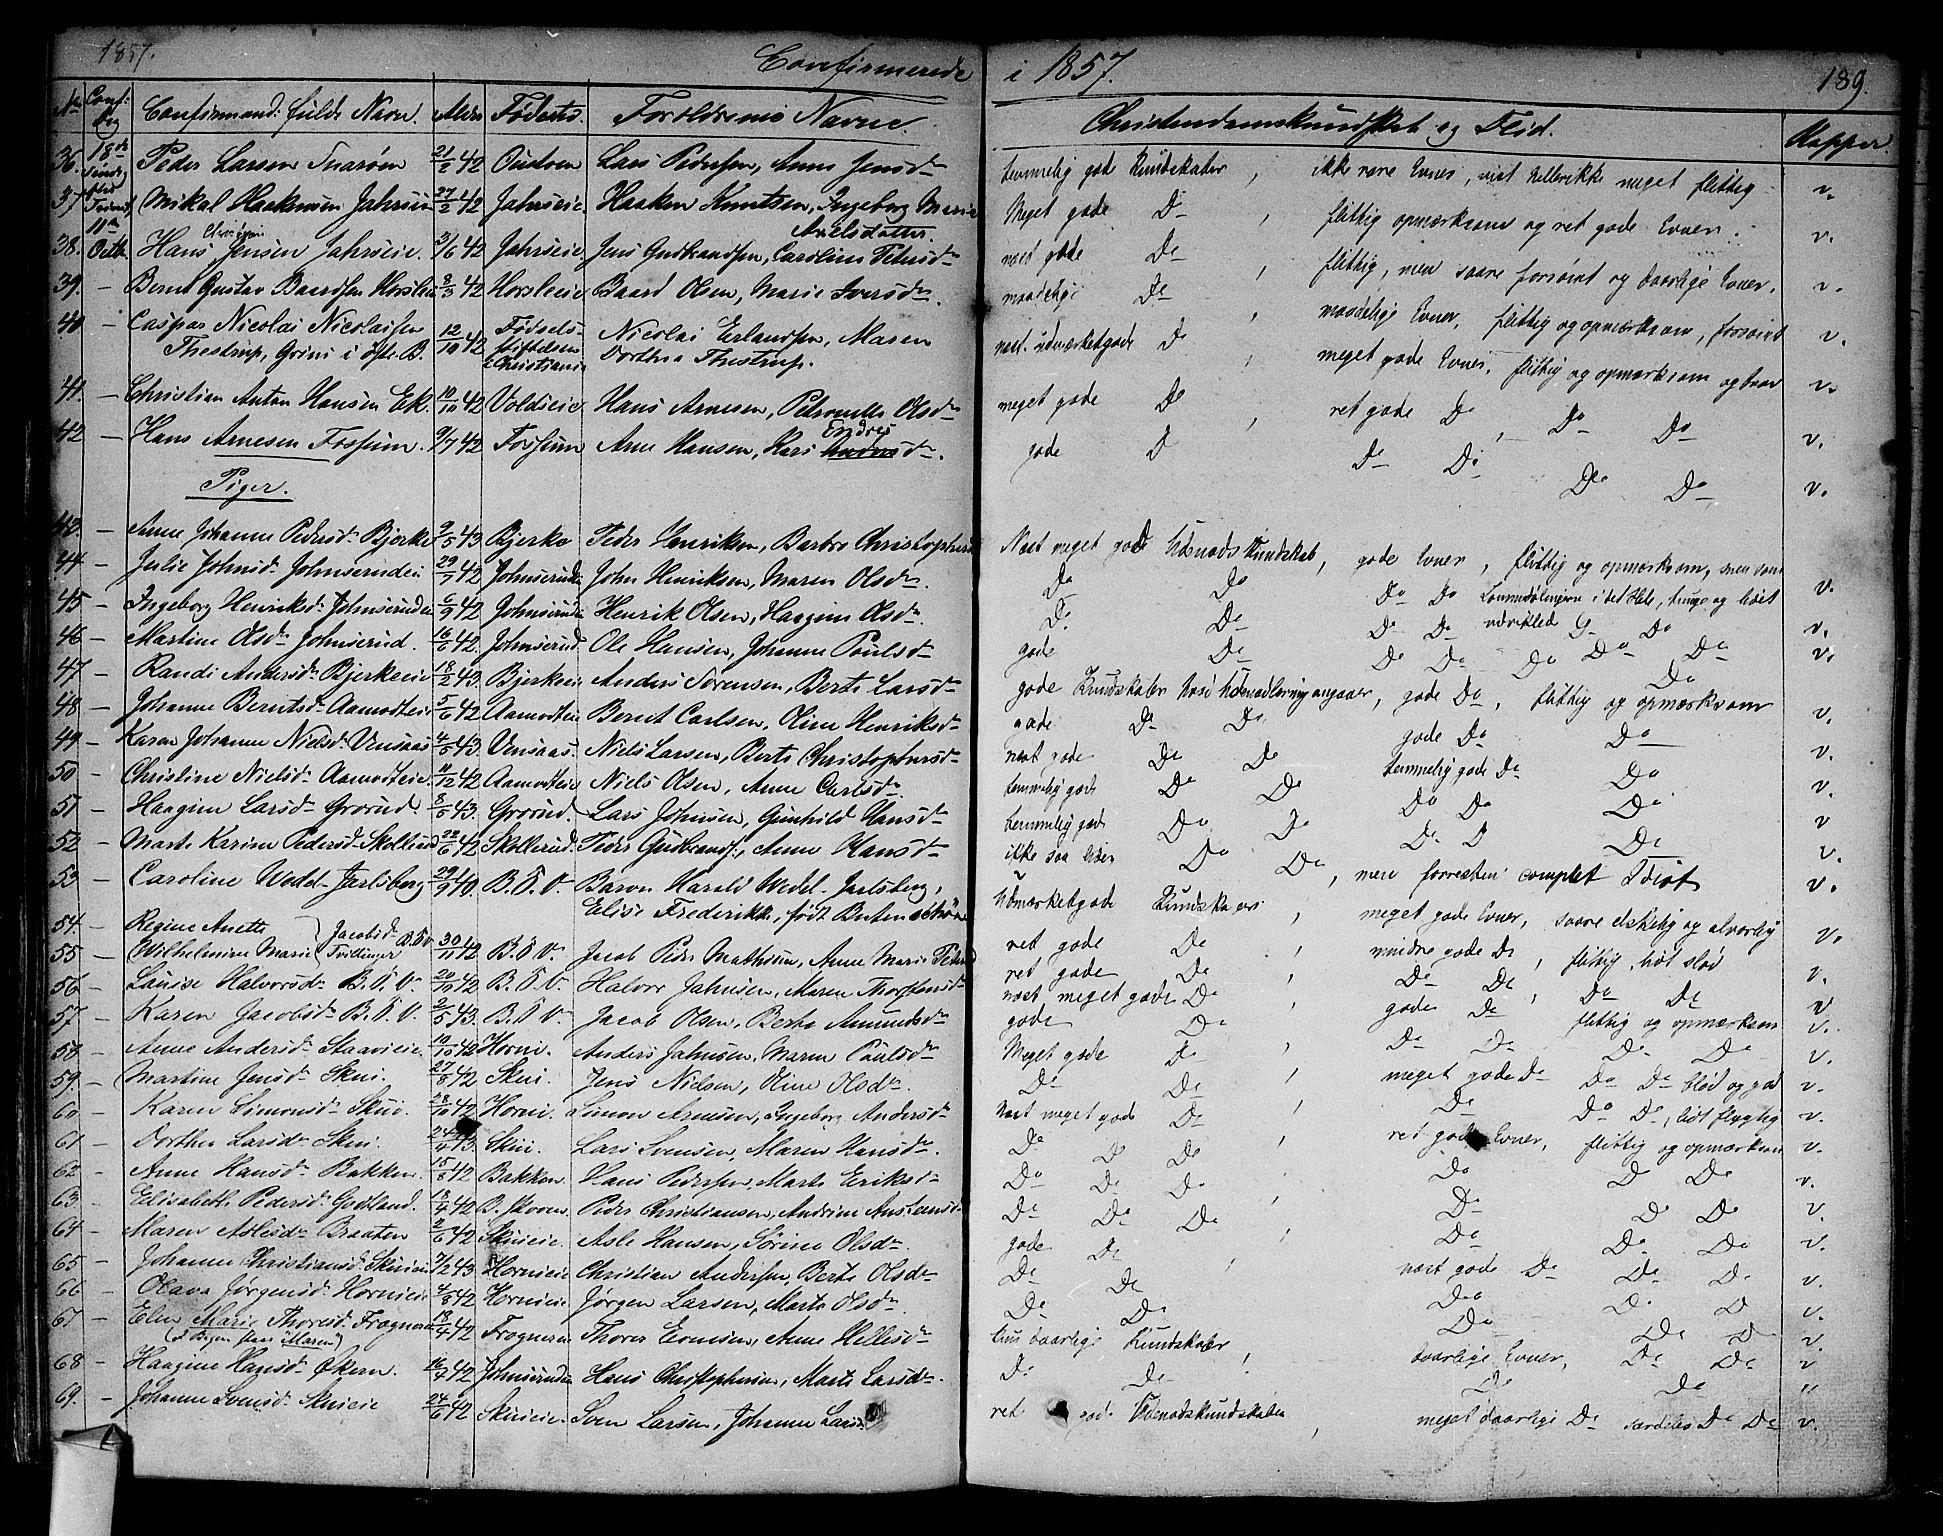 1857.
Confirmerede i 1857.
189.
No Conf: Dag Confirmand: fulde Navn. Alder Fødests. Forældrenes Navne. Christendomskundskab og Flid. Kopper.
36. 18de Peder Larsen Snarøen 21/2 42 Oustøen Lars Pedersen, Anne Jensd. temmelig god Kundskaber, ikke rare Evner, vist hellerikke meget flittig v.
37. Mikal Haakensen Jahrseie 27/2 42 Jahrseie. Haaken Knutsen, Ingeborg Marie Axelsdatter. Meget gode Do, flittig opmærksom og ret gode Evner. v.
38. 11te Octb. Hans Jensen Jahrseie 3/6 42 Jahrseie Jens Gudbrandsen, Caroline Petersd. næst gode Do, flittig, men saare forsømt og daarlige Evner. v.
39. — Bernt Gustav Baardsen Horsleeie 2/3 42 Horsleeie Baard Olsen, Marie Iversd. maadelige Do, maadelige Evner, flittig og opmærksom, forsømt v.
40 — Caspar Nicolai Nicolaisen 12/10 42 Fødsels- Nicolai Erlandsen, Maren næst. udmærketgode Do, meget gode Evner, flittig og opmærksom og brav v.
Thestrup, Grini i østr. B. stiftelsen Dorthea Thestrup.
Christiania
41. — Christian Anton Hansen Ek. 10/10 42 Voldseie. Hans Arnesen, Petronelle Olsd. meget gode Do, ret gode Do, Do Do v.
42 — Hans Arnesen Fossum. 9/7 42 Fossum Arne Hansen, Kari Endres Andersd. gode D Do Do Do Do v.
Piger.
43. — Anne Johanne Pedersd. Bjerke 9/5 43 Bjerke Peder Henriksen, Barbro Christophersd. Næst meget gode Udenads Kundskab, gode Evner, flittig og opmærksom, men som
44. — Julie Johnsd. Johnserudeie 29/7 42 Johnserudeie John Henriksen, Maren Olsd. Do Do Do Do i det Hele, tunge og lidet v.
45 — Ingeborg Henriksd. Johnserudeie 6/9 42 Johnserudeie Henrik Olsen, Haagine Olsd. Do. Do Do Do udviklet Do v.
46 — Martine Olsd. Johnserud. 16/6 42. Johnserud. Ole Hansen, Johanne Poulsd. gode Do Do Do Do Do Do v.
47 — Randi Andersd. Bjerkeeie 18/2 43. Bjerkeeie Anders Sørensen, Berte Larsd. gode Kundskaber hvad Udenadlæring angaaer, gode Do, flittig og opmærksom
48 — Johanne Berntsd. Aamodteie 5/6 42 Aamodteie Bernt Carlsen, Oline Henriksd. gode Do Do gode Do Do v.
49 — Karen Johanne Nielsd. Vensaas 4/5 43. Vensaas Niels Larsen, Berte Christophersd. næst gode Do Do temmelig gode Do Do v.
50 — Christine Nielsd. Aamodteie. 11/12 42 Aamodteie Niels Olsen, Anne Carlsd. temmelig gode Do Do Do Do Do v.
51 — Haagine Larsd. Grorud. 8/5 43. Grorud. Lars Johnsen, Gunhild Hansd. temmelig gode Do Do Do D Do v
52 — Marte Karine Pedersd. Skollerud 22/6 42 Skollerud. Peder Gudbrands., Anne Hansd. ikke saa Do Do, men forresten complet Idiot v.
53 — Caroline Wedel-Jarlsberg 29/9 40. B. Ø. V. Baron Harald Wedel-Jarlsberg, Udmærketgode Kundskaber, meget gode Evner, saare elskelig og alvorlig v.
Elise Frederikke, født Butenschøn
54. — Regine Anette Jacobsd. B.Ø.V. ret gode Do, mindre gode Do, flittig, lidt sløv v.
55 Wilhelmine Marie Tvillinger 30/11 42 B. Ø. V. Jacob Peder Mathisen, Anne Marie ret gode Do, Do Do, Do Do v.
56 — Louise Halvorsd. B. Ø. V. 20/11 42 B. Ø. V. Halvor Jahnsen, Maren Thorstensd. næst meget gode Do, gode Do flittig og opmærksom v.
57. — Karen Jacobsd. B. Ø. V. 2/5 43. B. Ø V. Jacob Olsen, Berte Amundsd. gode Do Do Do Do Do v.
58 — Anne Andersd. Staavieie. 19/10 42 Horni. Anders Jahnsen, Maren Poulsd. Meget gode Do, meget gode Do Do Do v.
59. — Martine Jensd. Skui. 27/8 42 Skui. Jens Nielsen, Oline Olsd. Do Do, Do Do Do, v.
60 — Karen Simonsd. Skui. 28/10 42 Horni. Simon Arnesen, Ingeborg Andersd. Næst meget gode Do, ret gode Evner, flittig og opmærksom v.
61 — Dorthea Larsd. Skui. 24/4 43 Skui. Lars Svensen, Maren Hansd. Do Do Do, Do D Do v.
62 — Anne Hansd. Bakken. 15/8 42 Bakken. Hans Pedersen, Marte Eriksd. Do Do Do, Do Do Do v.
63. — Elisabeth Pedersd. Godtland. 18/4 42 B. Skoven. Peder Christiansen, Andrine Anstensd. Do Do Do, Do Do Do v.
64 — Maren Aslesd. Braaten 2/6 42 Skuieie. Asle Hansen, Sørine Olsd. gode Do, næst gode Do Do Do v.
65 — Johanne Christiansd. Skuieie 7/2 43 Hornieie Christian Andersen, Berte Olsd. Do Do Do Do D v.
66 — Olava Jørgensd. Hornieie 4/8 42 Hornieie Jørgen Larsen, Marte Olsd. Do Do Do Do D v.
67 — Elen Marie Thoresd. Frogneren 18/4 42 Frogneren Thorer Evensen, Anne Hellesd. daarlige Kundskaber, daarlige Evner, Do Do v.
(I Bogen staar "Maren")
68 — Haagine Hansd. Økern. 16/7 42 Johnserudeie Hans Christophersen, Marte Larsd. Do Do Do Do "
69. — Johanne Svensd. Skuieie 24/6 42 Skuieie. Sven Larsen, Johanne Larsd. ret gode Udenadskundskaber, meget daarlige Do særdeles Do Do v.